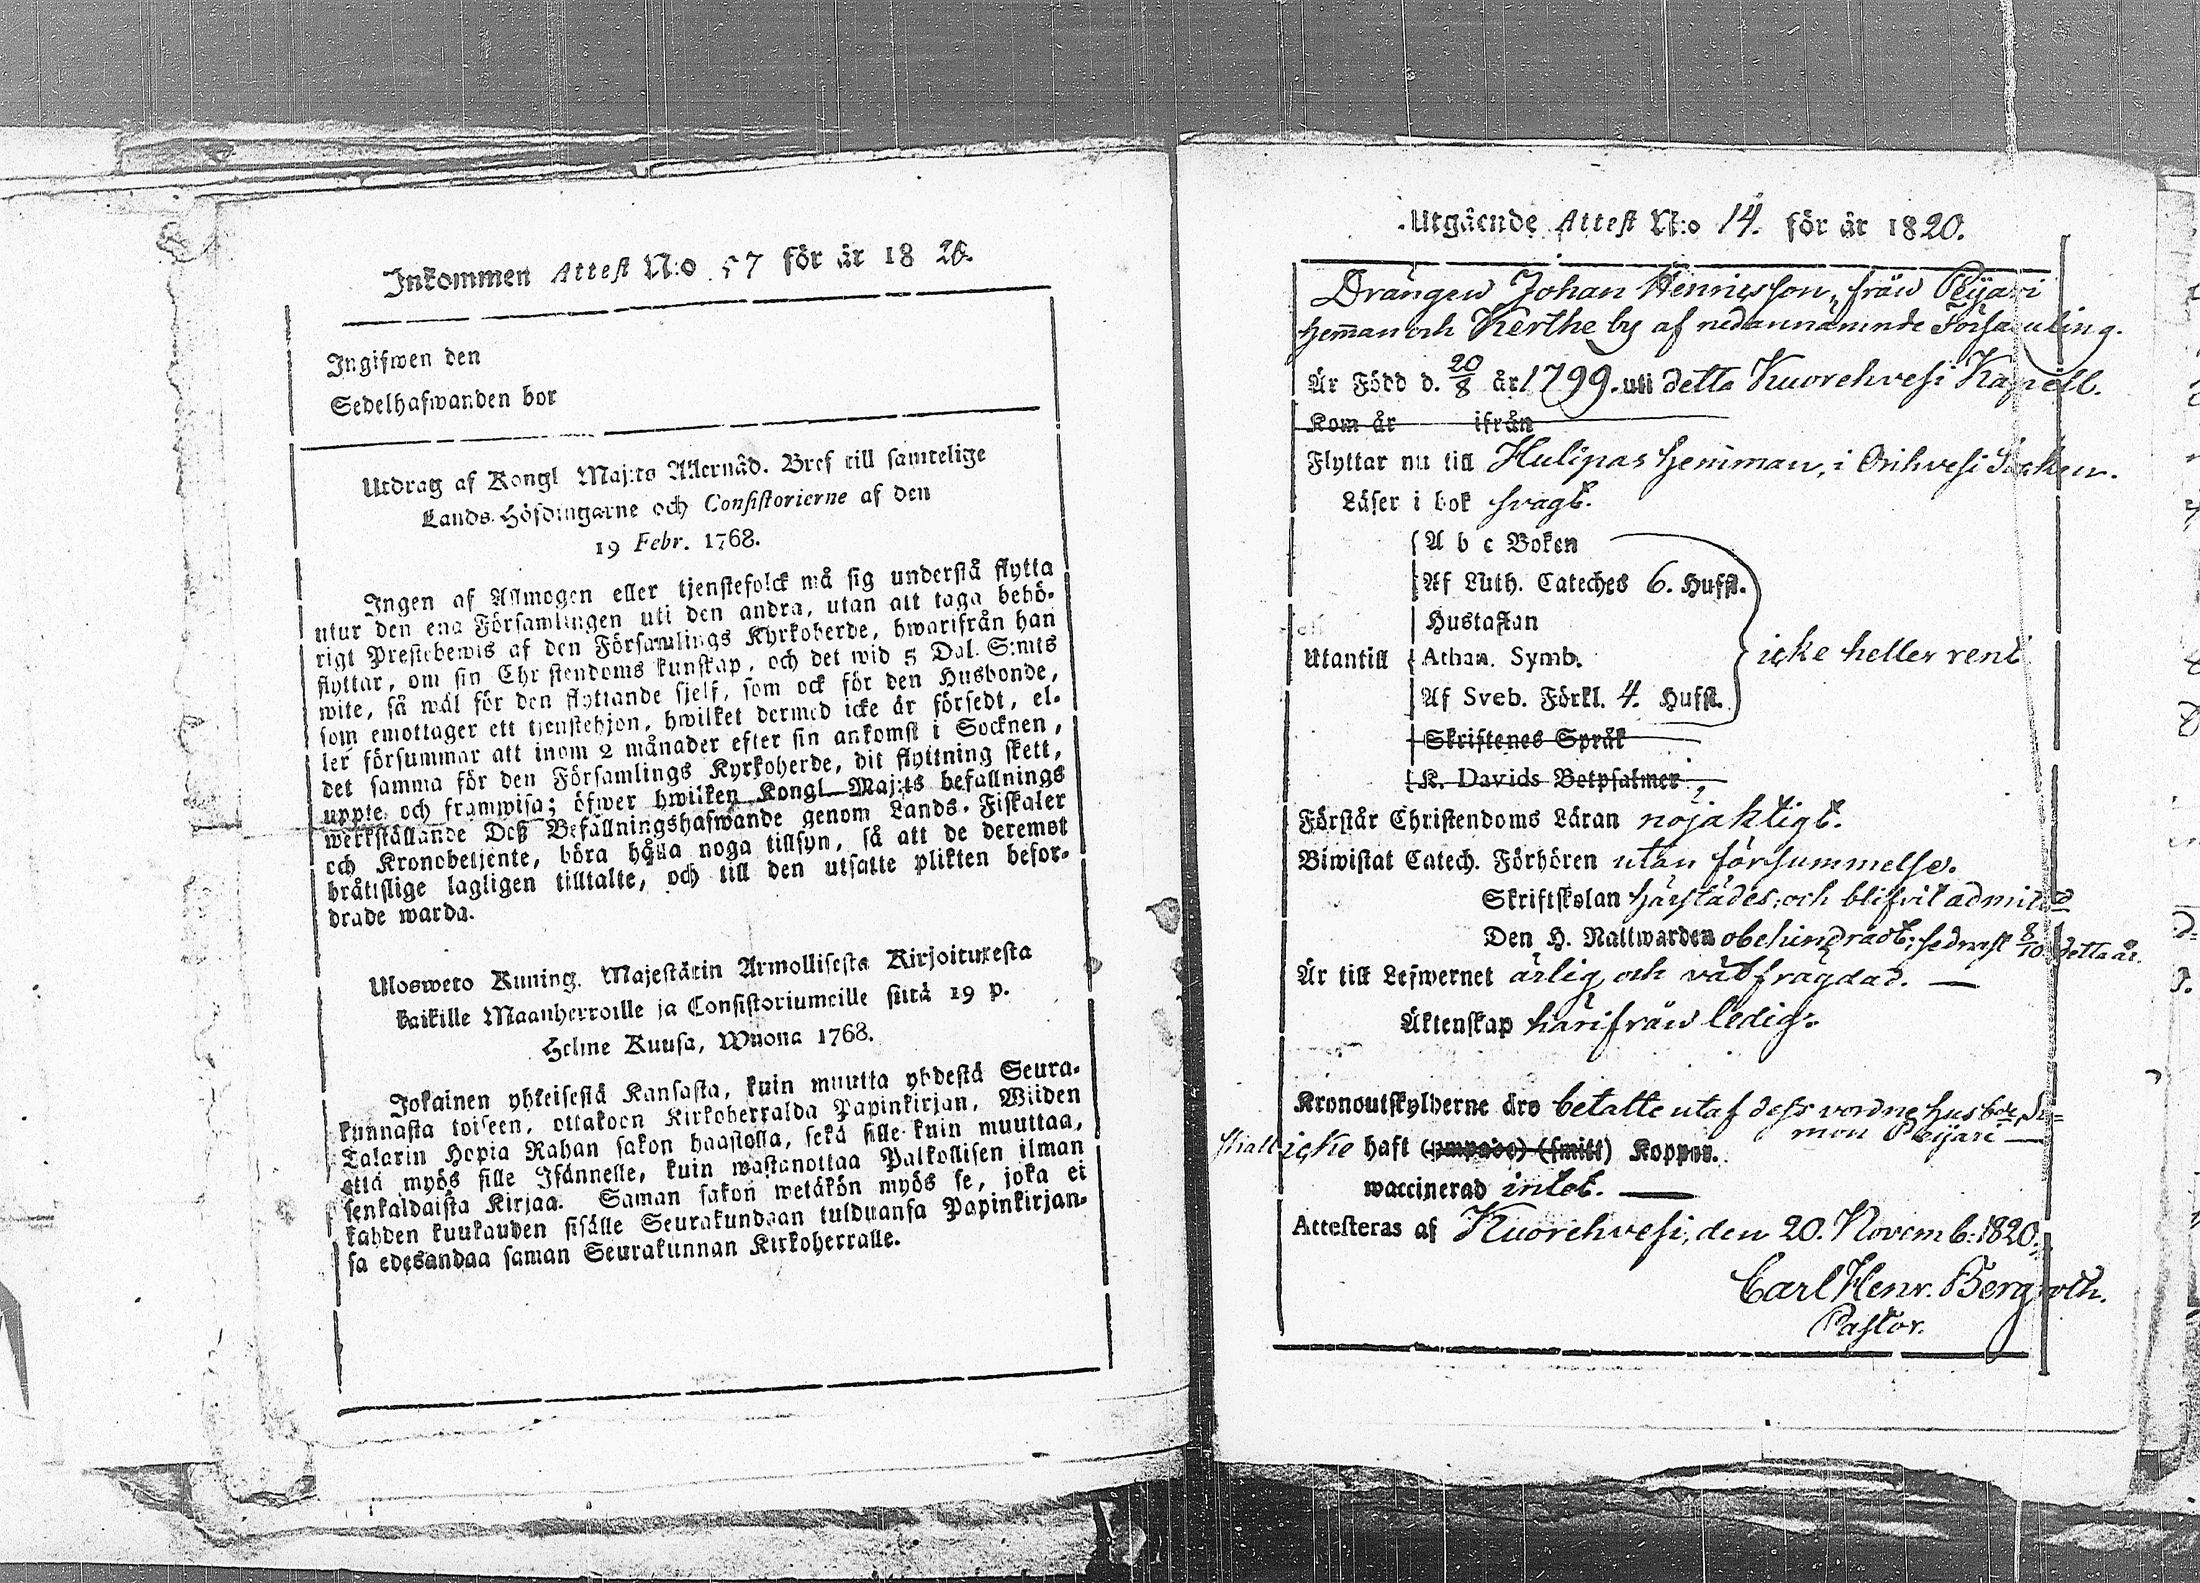 Inkommen Attest N:o 57 för år 1820.
Ingifwen den
Sedelhafwanden bor
Utdrag af Kongl Maj:ts Allernåd. Bref till samtelige
Lands-Höfdingarne och Consistorierne af den
19 Febr. 1768.
Ingen af Allmogen eller tjenstefolck må sig understå flytta
utur den ena Församlingen uti den andra, utan att taga behö-
rigt Prestebewis af den Församlings Kyrkoherde, hwarifrån han
flyttar, om sin Christendoms kunskap, och det wid 5 Dal. S:mts
wite, så wäl för den flyttande sjelf, som ock för den Husbonde,
som emottager ett tjenstehjon, hwilket dermed icke är försedt, el-
ler försummar att inom 2 månader efter sin ankomst i Socknen,
det samma för den Församlings Kyrkoherde, dit flyttning skett,
uppte och framwisa; öfwer hwilken Kongl Maj:ts befallnings
werkställande Deß Befallningshafwande genom Lands-Fiskaler
och Kronobetjente, böra hålla noga tillsyn, så att de deremot
bråttslige lagligen tilltalte, och till den utsatte plikten befor-
drade warda.
Ulosweto Kuning. Majestätin Armollisesta Kirjoituxesta
kaikille Maanherroille ja Consistoriumeille siitä 19 p.
Helme Kuusa, Wuona 1768.
Jokainen yhteisestä Kansasta, kuin muutta yhdestä Seura-
kunnasta toiseen, ottakoon Kirkoherralda Papinkirjan, Wiiden
Talarin Hopia Rahan sakon haastolla, sekä sille kuin muuttaa,
että myös sille Isännelle, kuin wastanottaa Palkollisen ilman
senkaldaista Kirjaa. Saman sakon wetäkön myös se, joka ei
kahden kuukauden sisälle Seurakundaan tulduansa Papinkirjan-
sa edesandaa saman Seurakunnan Kirkoherralle.
Utgående Attest N:o 14. för år 1820.
Drängen Johan Henricsson, från Peijari
hemman och Kerthe by af nedannämnde Församling.
Är Född d. 20/8 år 1799. uti detta Kuorehvesi Kapell.
Kom år ifrån
Flyttar nu till Hulipas hemman, i Orihvesi Socken.
Läser i bok svagt.
A b c Boken
Af Luth. Cateches 6. Hufst.
Hustaflan
Utantill Athan. Symb. icke heller rent
Af Sveb. Förkl. 4. Hufst.
Skriftenes Språk
K. Davids Botpsalmer
Förstår Christendoms Läran nöjaktigt.
Biwistat Catech. Förhören utan försummelse.
Skriftskolan härstädes, och blifvit admitted
Den H. Nattwarden obehindradt; sednast 8/10 detta år.
Är till Lefwernet ärlig och välfrägdad.
Äktenskap härifrån ledig.
Kronoutskylderne äro betalte utaf dess vordne husbde, Si-
mon Peijari
skall icke haft (ympade) (smitt) Koppor.
waccinerad intet.
Attesteras af Kuorehvesi, den 20. Novemb: 1820.
Carl Henr. Bergroth.
Pastor.